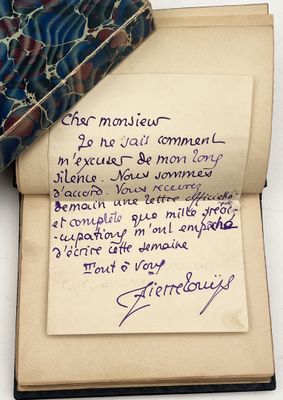 Cher monsieur
Je ne sais comment
m'excuser de mon long
silence. Nous sommes
d'accord. Vous recevrez
demain une lettre officielle
et complète que mille préoc-
cupations m'ont empêché
d'écrire cette semaine
Tout à vous
Pierre Louÿs